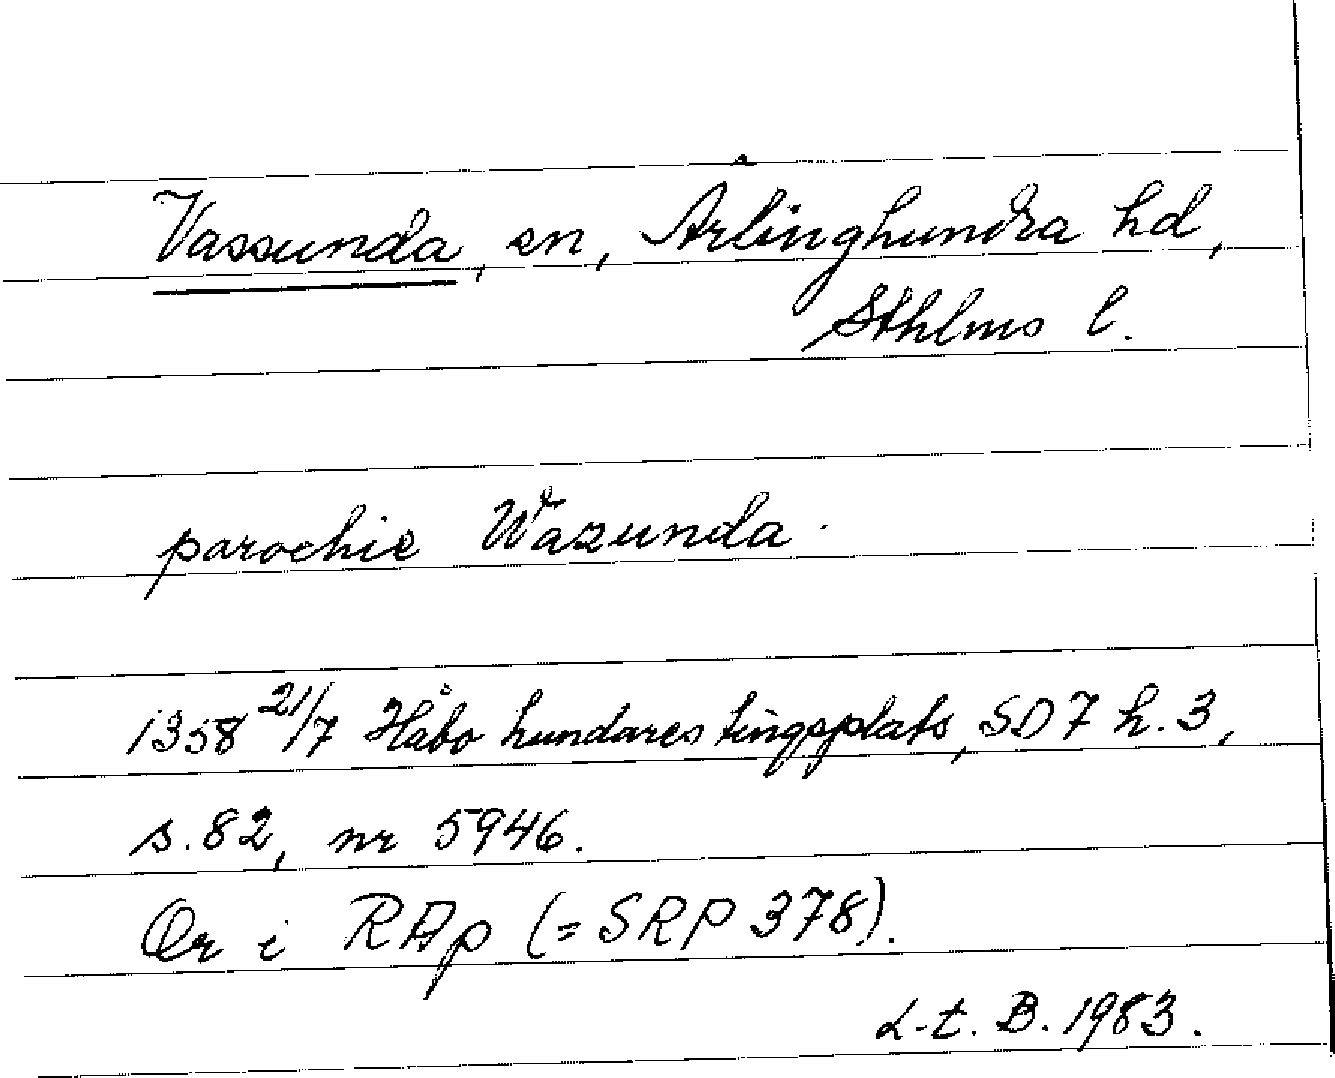 Vassunda, sn, Ärlinghundra hd,
Sthlms l.
parochie Wazunda.
1358 21/7 Håbo hundares tingsplats, SD 7 h. 3,
s. 82, nr 5946.
Or i RAp (= SRP 378).
L-t. B. 1983.